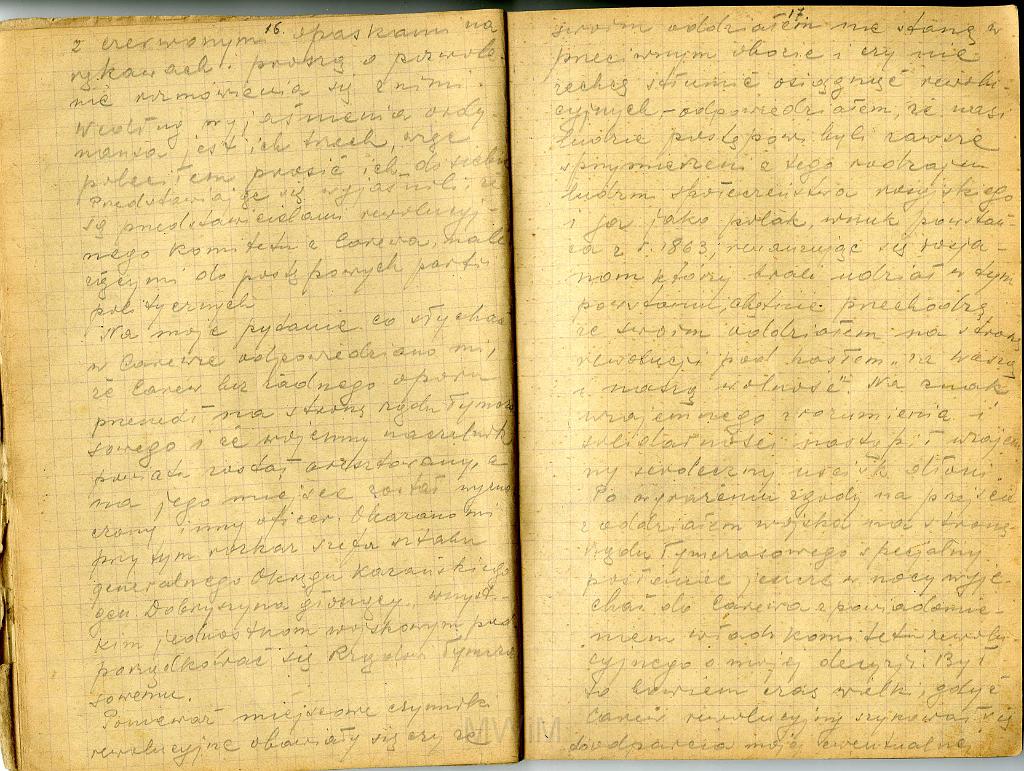 16.
z czerwonymi opaskami na
rękawach. proszą o pozwole-
nie rozmówienia się z nimi.
Według wyjaśnienia ordy-
nansa jest ich trzech, więc
poleciłem prosić ich do siebie
Przedstawiając się wyjaśnili, że
są przedstawicielami rewolucyj-
nego Komitetu z Carewa, nale-
żącymi do postępowych partii
politycznych
Na moje pytanie co słychać
w Carewie odpowiedziano mi,
że Carew bez żadnego oporu
przeszedł na stronę Rządu Tymcza-
sowego i że wojenny naczelnik
powiatu został aresztowany, a
na jego miejsce został wyzna-
czony inny oficer. Okazano mi
przy tym rozkaz szefa sztabu
generalnego Okręgu Kazańskiego
gen. Dobryszyna głoszący, wszyst-
kim jednostkom wojskowym pod-
porządkować się Rządowi Tymcza-
sowemu.
Ponieważ miejscowe czynniki
rewolucyjne obawiały się czy ze
17.
swoim oddziałem nie stanę w
przeciwnym obozie i czy nie
zechcę stłumić osiągnięć rewolu-
cyjnych - odpowiedziałem, że nasi
ludzie postępowi byli zawsze
sprzymierzeni z tego rodzaju
ludźmi społeczeństwa rosyjskiego
i ja jako polak, wnuk powstań-
ca z r. 1863, rewanżując się rosja-
nom którzy brali udział w tym
powstaniu, chętnie przechodzę
ze swoim oddziałem na stronę
rewolucji pod hasłem „za waszą
i naszą wolność". Na znak
wzajemnego zrozumienia i
solidarności nastąpił wzajem-
ny serdeczny uścisk dłoni.
Po wyrażeniu zgody na przejście
z oddziałem wojska na stronę
Rządu Tymczasowego specjalny
posłaniec jeszcze w nocy wyje-
chał do Carewa z powiadomie-
niem władz komitetu rewolu-
cyjnego o mojej decyzji. Był
to bowiem czas wielki, gdyż
Carew rewolucyjny szykował się
do odparcia mojej ewentualnej
MWiM